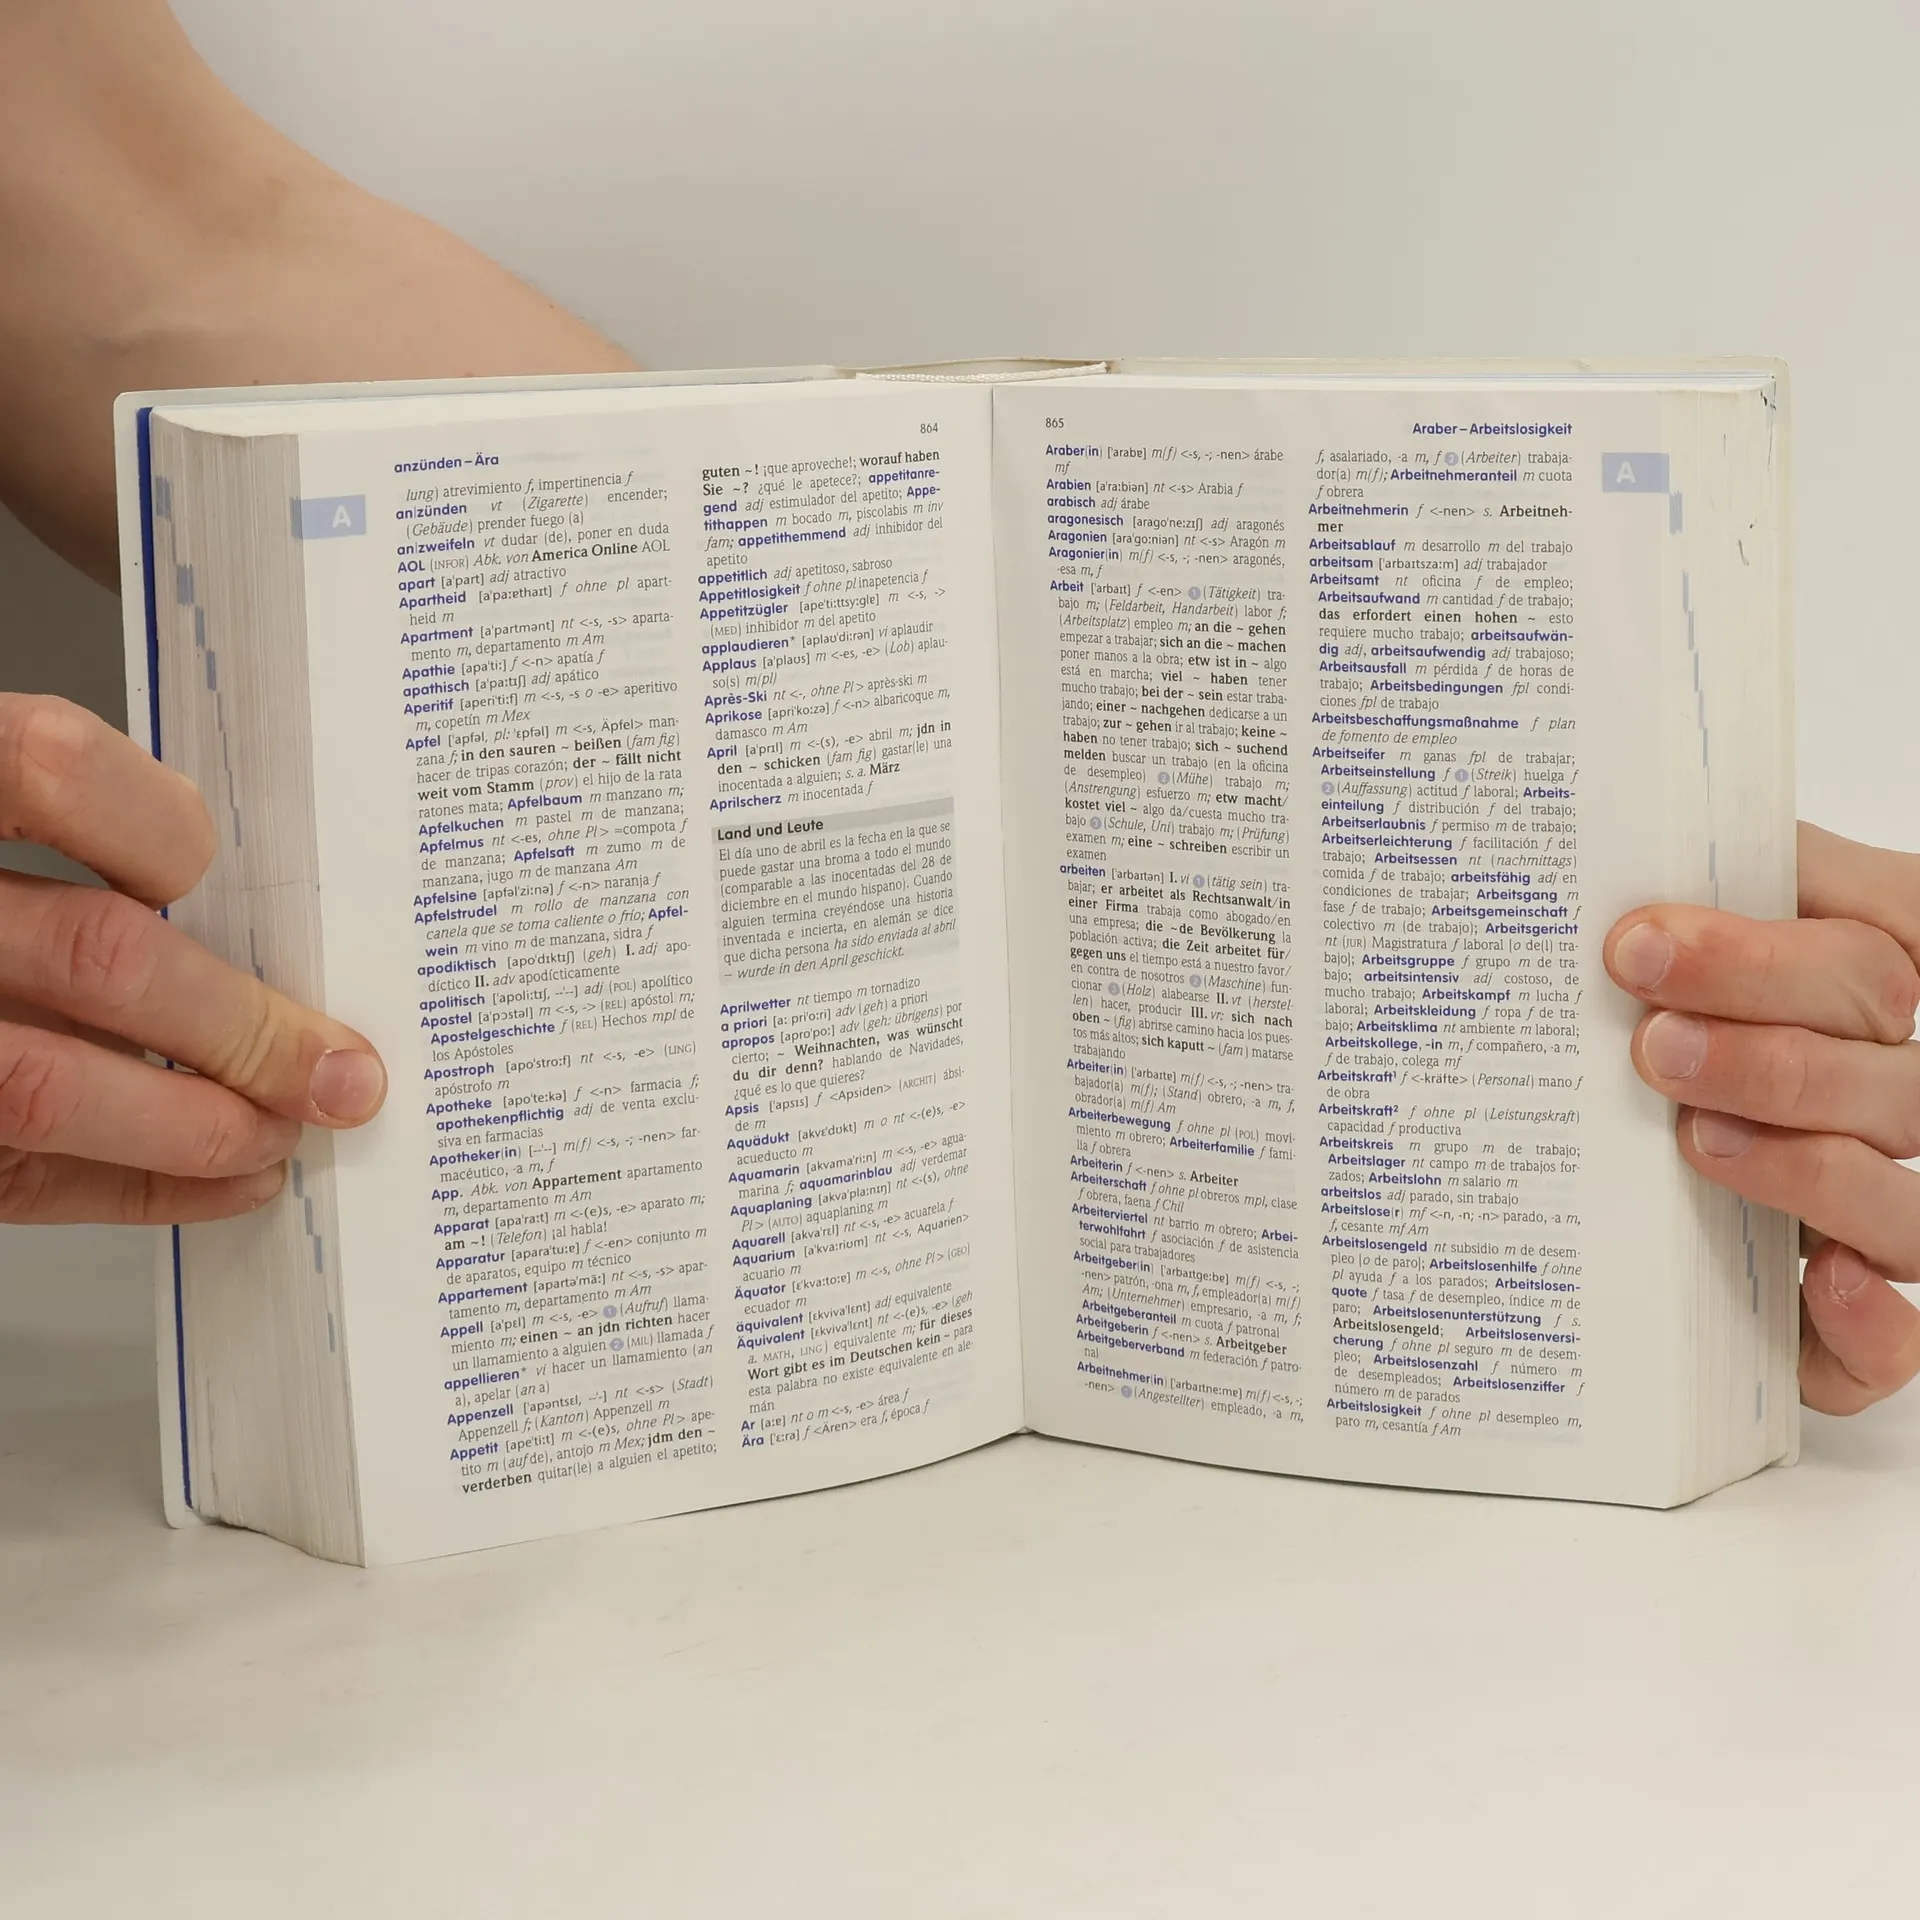 864
anzünden – Ära
A
lung) atrevimiento f, impertinencia f
an|zünden vt (Zigarette) encender;
(Gebäude) prender fuego (a)
an|zweifeln vt dudar (de), poner en duda
AOL (INFOR) Abk. von America Online AOL
apart [a'part] adj atractivo
Apartheid [a'pa:ɐthaɪt] f ohne pl apart-
heid m
Apartment [a'partmənt] nt <-s, -s> aparta-
mento m, departamento m Am
Apathie [apa'ti:] f <-n> apatía f
apathisch [a'pa:tɪʃ] adj apático
Aperitif [aperi'ti:f] m <-s, -s o -e> aperitivo
m, copetín m Mex
Apfel ['apfəl, pl: 'ɛpfəl] m <-s, Äpfel> man-
zana f; in den sauren ~ beißen (fam fig)
hacer de tripas corazón; der ~ fällt nicht
weit vom Stamm (prov) el hijo de la rata
ratones mata; Apfelbaum m manzano m;
Apfelkuchen m pastel m de manzana;
Apfelmus nt <-es, ohne Pl> ≈compota f
de manzana; Apfelsaft m zumo m de
manzana, jugo m de manzana Am
Apfelsine [apfəl'zi:nə] f <-n> naranja f
Apfelstrudel m rollo de manzana con
canela que se toma caliente o frío; Apfel-
wein m vino m de manzana, sidra f
apodiktisch [apo'dɪktɪʃ] (geh) I. adj apo-
díctico II. adv apodícticamente
apolitisch ['apoli:tɪʃ, --'--] adj (POL) apolítico
Apostel [a'pɔstəl] m <-s, -> (REL) apóstol m;
Apostelgeschichte f (REL) Hechos mpl de
los Apóstoles
Apostroph [apo'stro:f] nt <-s, -e> (LING)
apóstrofo m
Apotheke [apo'te:kə] f <-n> farmacia f;
apothekenpflichtig adj de venta exclu-
siva en farmacias
Apotheker(in) [--'--] m(f) <-s, -; -nen> far-
macéutico, -a m, f
App. Abk. von Appartement apartamento
m, departamento m Am
Apparat [apa'ra:t] m <-(e)s, -e> aparato m;
am ~! (Telefon) ¡al habla!
Apparatur [apara'tu:ɐ] f <-en> conjunto m
de aparatos, equipo m técnico
Appartement [apartə'mã:] nt <-s, -s> apar-
tamento m, departamento m Am
Appell [a'pɛl] m <-s, -e> 1 (Aufruf) llama-
miento m; einen ~ an jdn richten hacer
un llamamiento a alguien 2 (MIL) llamada f
appellieren* vi hacer un llamamiento (an
a), apelar (an a)
Appenzell ['apəntsɛl, --'-] nt <-s> (Stadt)
Appenzell f; (Kanton) Appenzell m
Appetit [ape'ti:t] m <-(e)s, ohne Pl> ape-
tito m (auf de), antojo m Mex; jdm den ~
verderben quitar(le) a alguien el apetito;
guten ~! ¡que aproveche!; worauf haben
Sie ~? ¿qué le apetece?; appetitanre-
gend adj estimulador del apetito; Appe-
tithappen m bocado m, piscolabis m inv
fam; appetithemmend adj inhibidor del
apetito
appetitlich adj apetitoso, sabroso
Appetitlosigkeit f ohne pl inapetencia f
Appetitzügler [ape'ti:ttsy:glɐ] m <-s, ->
(MED) inhibidor m del apetito
applaudieren* [aplaʊ'di:rən] vi aplaudir
Applaus [a'plaʊs] m <-es, -e> (Lob) aplau-
so(s) m(pl)
Après-Ski nt <-, ohne Pl> après-ski m
Aprikose [apri'ko:zə] f <-n> albaricoque m,
damasco m Am
April [a'prɪl] m <-(s), -e> abril m; jdn in
den ~ schicken (fam fig) gastar(le) una
inocentada a alguien; s. a. März
Aprilscherz m inocentada f
Land und Leute
El día uno de abril es la fecha en la que se
puede gastar una broma a todo el mundo
(comparable a las inocentadas del 28 de
diciembre en el mundo hispano). Cuando
alguien termina creyéndose una historia
inventada e incierta, en alemán se dice
que dicha persona ha sido enviada al abril
– wurde in den April geschickt.
Aprilwetter nt tiempo m tornadizo
a priori [a: pri'o:ri] adv (geh) a priori
apropos [apro'po:] adv (geh: übrigens) por
cierto; ~ Weihnachten, was wünscht
du dir denn? hablando de Navidades,
¿qué es lo que quieres?
Apsis ['apsɪs] f <Apsiden> (ARCHIT) ábsi-
de m
Aquädukt [akvɛ'dʊkt] m o nt <-(e)s, -e>
acueducto m
Aquamarin [akvama'ri:n] m <-s, -e> agua-
marina f; aquamarinblau adj verdemar
Aquaplaning [akva'pla:nɪŋ] nt <-(s), ohne
Pl> (AUTO) aquaplaning m
Aquarell [akva'rɛl] nt <-s, -e> acuarela f
Aquarium [a'kva:riʊm] nt <-s, Aquarien>
acuario m
Äquator [ɛ'kva:to:ɐ] m <-s, ohne Pl> (GEO)
ecuador m
äquivalent [ɛkviva'lɛnt] adj equivalente
Äquivalent [ɛkviva'lɛnt] nt <-(e)s, -e> (geh
a. MATH, LING) equivalente m; für dieses
Wort gibt es im Deutschen kein ~ para
esta palabra no existe equivalente en ale-
mán
Ar [a:ɐ] nt o m <-s, -e> área f
Ära ['ɛ:ra] f <Ären> era f, época f
865
Araber – Arbeitslosigkeit
A
Araber(in) ['arabɐ] m(f) <-s, -; -nen> árabe
mf
Arabien [a'ra:biən] nt <-s> Arabia f
arabisch adj árabe
aragonesisch [arago'ne:zɪʃ] adj aragonés
Aragonien [ara'go:niən] nt <-s> Aragón m
Aragonier(in) m(f) <-s, -; -nen> aragonés,
-esa m, f
Arbeit ['arbaɪt] f <-en> 1 (Tätigkeit) tra-
bajo m; (Feldarbeit, Handarbeit) labor f;
(Arbeitsplatz) empleo m; an die ~ gehen
empezar a trabajar; sich an die ~ machen
poner manos a la obra; etw ist in ~ algo
está en marcha; viel ~ haben tener
mucho trabajo; bei der ~ sein estar traba-
jando; einer ~ nachgehen dedicarse a un
trabajo; zur ~ gehen ir al trabajo; keine ~
haben no tener trabajo; sich ~ suchend
melden buscar un trabajo (en la oficina
de desempleo) 2 (Mühe) trabajo m;
(Anstrengung) esfuerzo m; etw macht/
kostet viel ~ algo da/cuesta mucho tra-
bajo 3 (Schule, Uni) trabajo m; (Prüfung)
examen m; eine ~ schreiben escribir un
examen
arbeiten ['arbaɪtən] I. vi 1 (tätig sein) tra-
bajar; er arbeitet als Rechtsanwalt/in
einer Firma trabaja como abogado/en
una empresa; die ~de Bevölkerung la
población activa; die Zeit arbeitet für/
gegen uns el tiempo está a nuestro favor/
en contra de nosotros 2 (Maschine) fun-
cionar 3 (Holz) alabearse II. vt (herstel-
len) hacer, producir III. vr: sich nach
oben ~ (fig) abrirse camino hacia los pues-
tos más altos; sich kaputt ~ (fam) matarse
trabajando
Arbeiter(in) ['arbaɪtɐ] m(f) <-s, -; -nen> tra-
bajador(a) m(f); (Stand) obrero, -a m, f,
obrador(a) m(f) Am
Arbeiterbewegung f ohne pl (POL) movi-
miento m obrero; Arbeiterfamilie f fami-
lia f obrera
Arbeiterin f <-nen> s. Arbeiter
Arbeiterschaft f ohne pl obreros mpl, clase
f obrera, faena f Chil
Arbeiterviertel nt barrio m obrero; Arbei-
terwohlfahrt f asociación f de asistencia
social para trabajadores
Arbeitgeber(in) ['arbaɪtge:bɐ] m(f) <-s, -;
-nen> patrón, -ona m, f, empleador(a) m(f)
Am; (Unternehmer) empresario, -a m, f;
Arbeitgeberanteil m cuota f patronal
Arbeitgeberin f <-nen> s. Arbeitgeber
Arbeitgeberverband m federación f patro-
nal
Arbeitnehmer(in) ['arbaɪtne:mɐ] m(f) <-s, -;
-nen> 1 (Angestellter) empleado, -a m,
f, asalariado, -a m, f 2 (Arbeiter) trabaja-
dor(a) m(f); Arbeitnehmeranteil m cuota
f obrera
Arbeitnehmerin f <-nen> s. Arbeitneh-
mer
Arbeitsablauf m desarrollo m del trabajo
arbeitsam ['arbaɪtsza:m] adj trabajador
Arbeitsamt nt oficina f de empleo;
Arbeitsaufwand m cantidad f de trabajo;
das erfordert einen hohen ~ esto
requiere mucho trabajo; arbeitsaufwän-
dig adj, arbeitsaufwendig adj trabajoso;
Arbeitsausfall m pérdida f de horas de
trabajo; Arbeitsbedingungen fpl condi-
ciones fpl de trabajo
Arbeitsbeschaffungsmaßnahme f plan
de fomento de empleo
Arbeitseifer m ganas fpl de trabajar;
Arbeitseinstellung f 1 (Streik) huelga f
2 (Auffassung) actitud f laboral; Arbeits-
einteilung f distribución f del trabajo;
Arbeitserlaubnis f permiso m de trabajo;
Arbeitserleichterung f facilitación f del
trabajo; Arbeitsessen nt (nachmittags)
comida f de trabajo; arbeitsfähig adj en
condiciones de trabajar; Arbeitsgang m
fase f de trabajo; Arbeitsgemeinschaft f
colectivo m (de trabajo); Arbeitsgericht
nt (JUR) Magistratura f laboral [o de(l) tra-
bajo]; Arbeitsgruppe f grupo m de tra-
bajo; arbeitsintensiv adj costoso, de
mucho trabajo; Arbeitskampf m lucha f
laboral; Arbeitskleidung f ropa f de tra-
bajo; Arbeitsklima nt ambiente m laboral;
Arbeitskollege, -in m, f compañero, -a m,
f de trabajo, colega mf
Arbeitskraft¹ f <-kräfte> (Personal) mano f
de obra
Arbeitskraft² f ohne pl (Leistungskraft)
capacidad f productiva
Arbeitskreis m grupo m de trabajo;
Arbeitslager nt campo m de trabajos for-
zados; Arbeitslohn m salario m
arbeitslos adj parado, sin trabajo
Arbeitslose(r) mf <-n, -n; -n> parado, -a m,
f, cesante mf Am
Arbeitslosengeld nt subsidio m de desem-
pleo [o de paro]; Arbeitslosenhilfe f ohne
pl ayuda f a los parados; Arbeitslosen-
quote f tasa f de desempleo, índice m de
paro; Arbeitslosenunterstützung f s.
Arbeitslosengeld; Arbeitslosenversi-
cherung f ohne pl seguro m de desem-
pleo; Arbeitslosenzahl f número m
de desempleados; Arbeitslosenziffer f
número m de parados
Arbeitslosigkeit f ohne pl desempleo m,
paro m, cesantía f Am